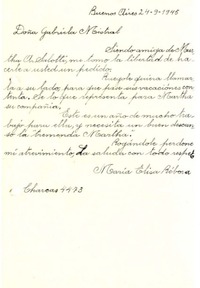 Buenos Aires 24-9-1945
Doña Gabriela Mistral
Siendo amiga de Mar-
tha A. Salotti, me tomo la libertad de ha-
cerle a usted un pedido.
Ruégole quiera llamar-
la a su lado para que pase sus vacaciones con
Vd. Se lo que representa para Martha
su compañia.
Este es un año de mucho tra
bajo para ella, y necesita un buen descan-
so la tremenda Martha.
Rogándole perdone
mi atrevimiento, la saluda con todo respeto
María Elisa Ribora
Charcas 4493